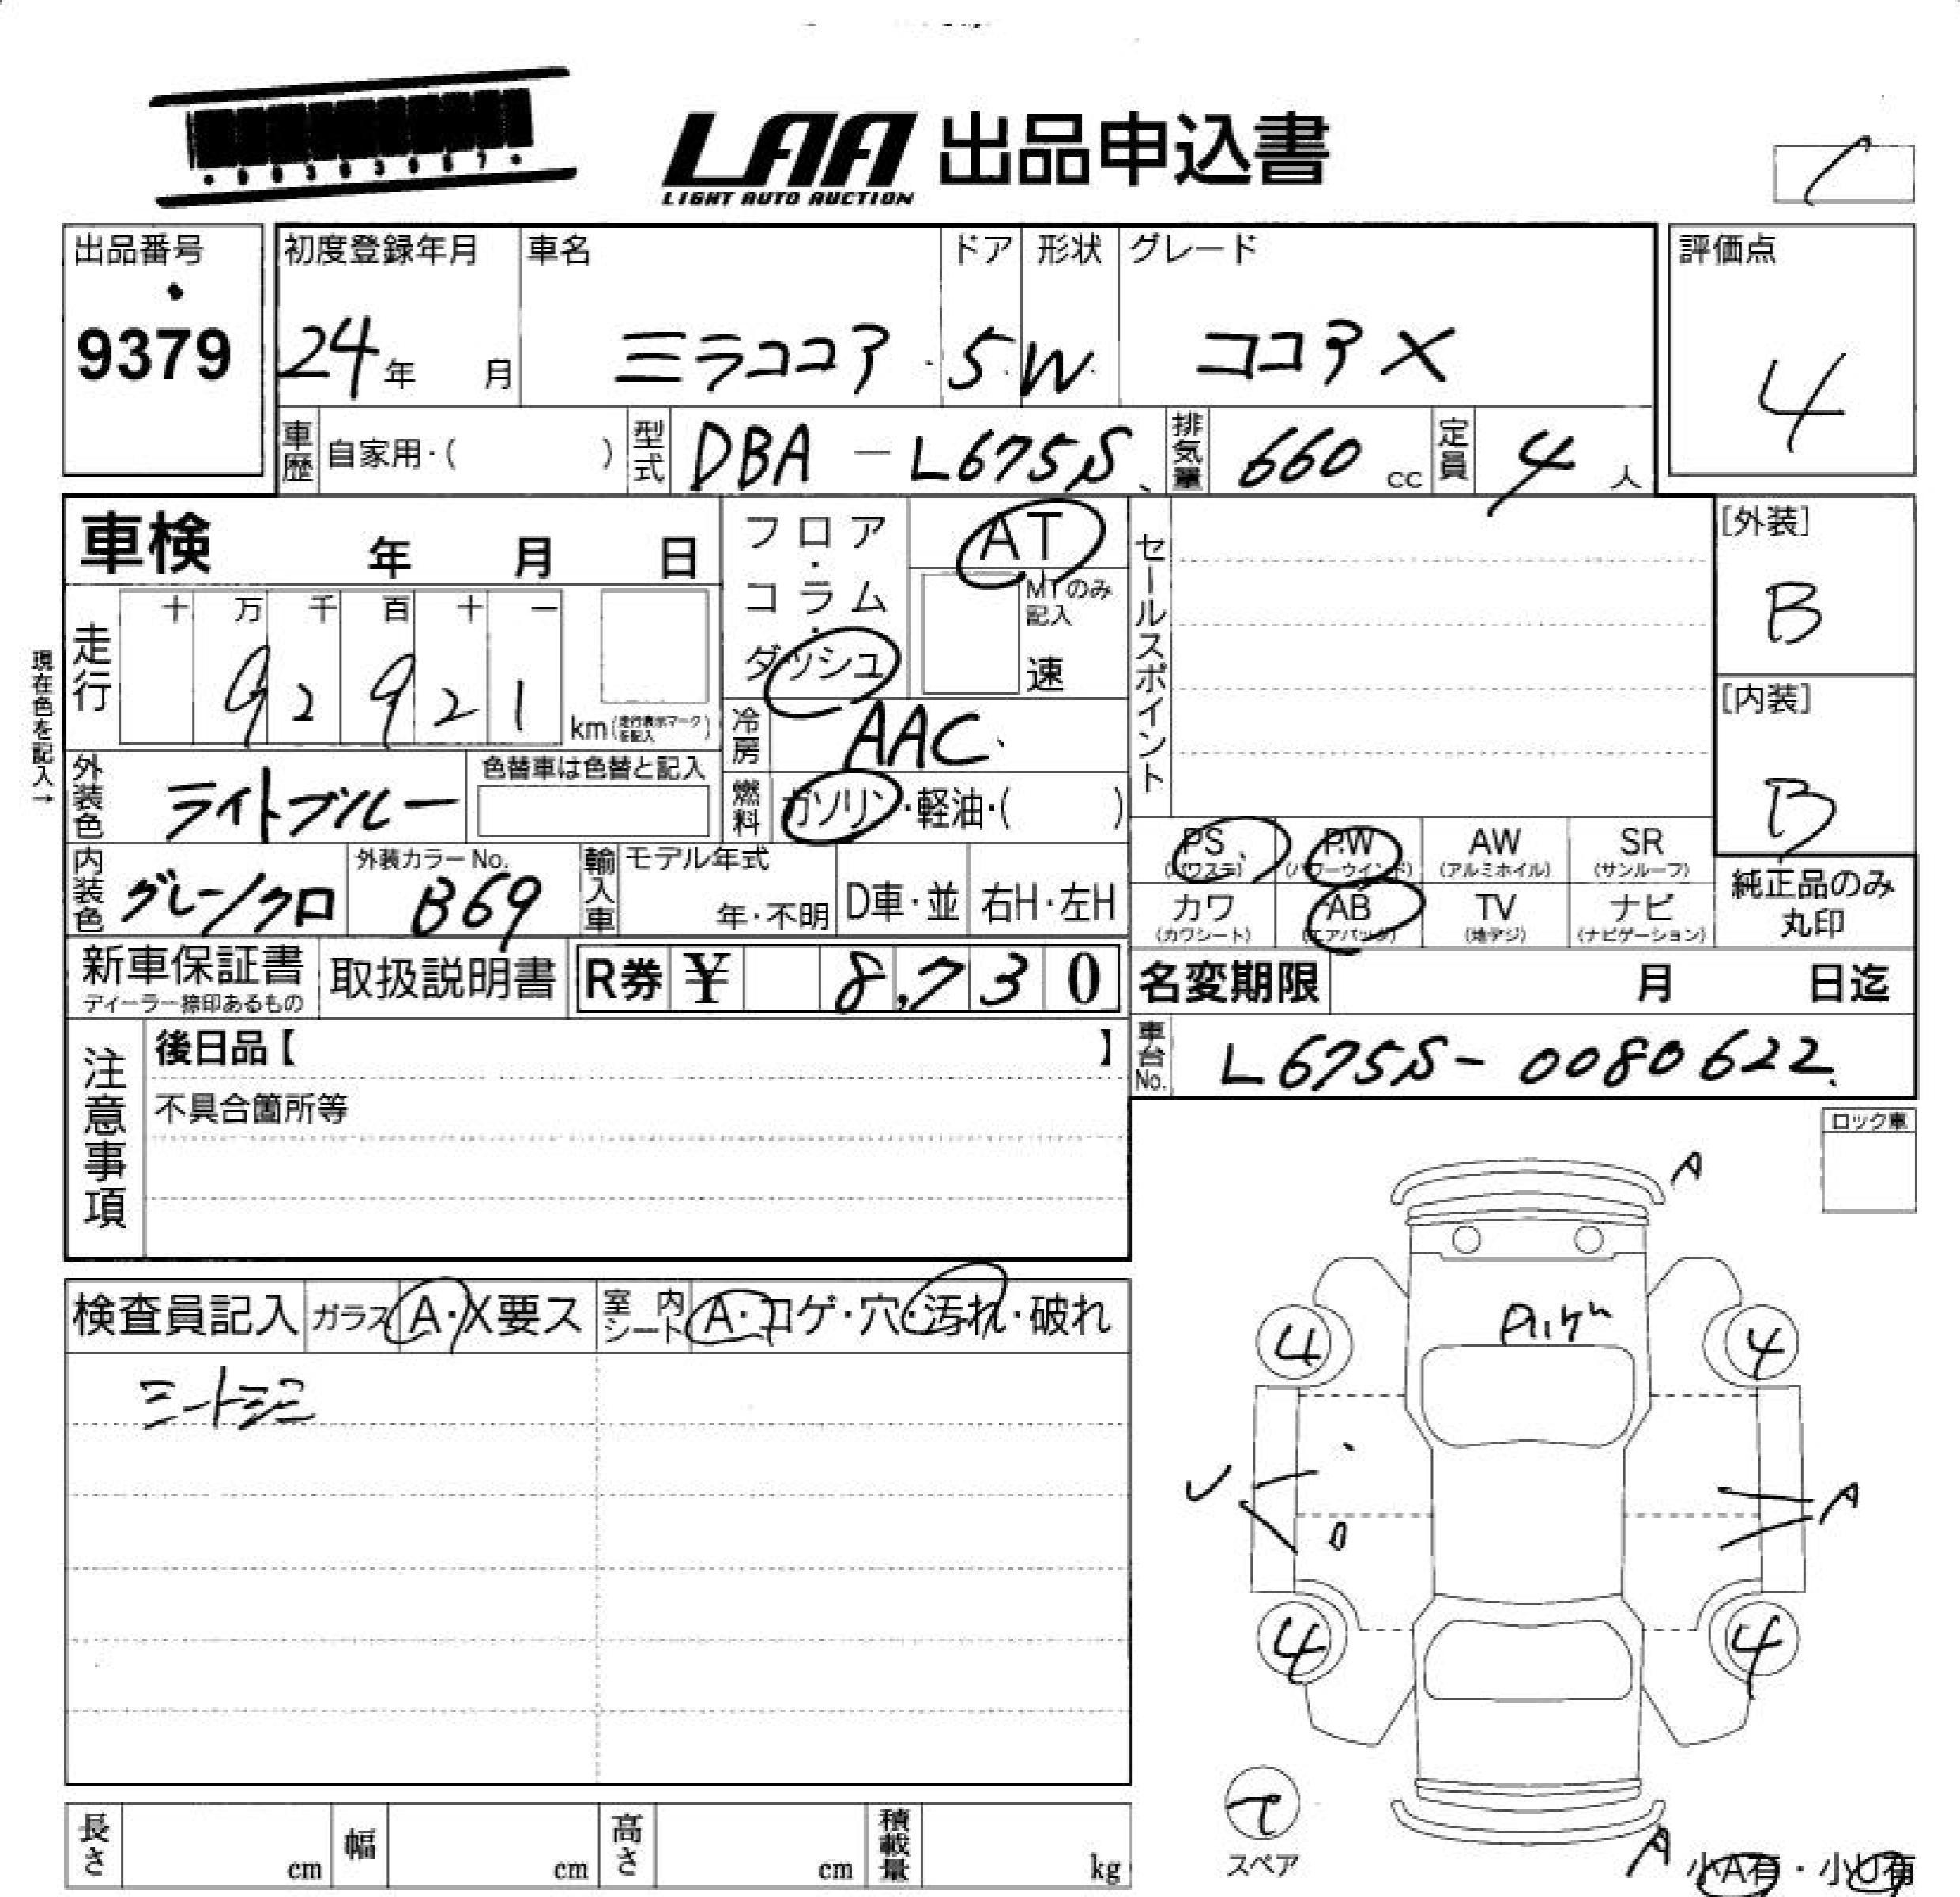 LAA 出品申込書
LIGHT AUTO AUCTION
出品番号 初度登録年月 車名 ドア 形状 グレード 評価点
9379 24年 月 ミラココア 5 W ココア X 4
車歴 自家用・( ) 型式 DBA - L675S 排気量 660 cc 定員 4 人
車検 年 月 日 フロア・コラム・ダッシュ AT セールスポイント [外装]
MTのみ記入 速 B
現在色を記入→
走行 十 万 千 百 十 一
9 2 9 2 1 km (走行表示マークを記入) [内装]
冷房 AAC B
外装色 ライトブルー 色替車は色替と記入 燃料 ガソリン・軽油・( )
PS (パワステ) PW (パワーウインド) AW (アルミホイル) SR (サンルーフ)
内装色 グレー/クロ 外装カラーNo. B69 輸入車 モデル年式 年・不明 D車・並 右H・左H
カワ (カワシート) AB (エアバッグ) TV (地デジ) ナビ (ナビゲーション) 純正品のみ丸印
新車保証書 ディーラー捺印あるもの 取扱説明書 R券 ¥ 8,730 名変期限 月 日迄
注意事項 後日品【 】 車台No. L675S-0080622
不具合箇所等
ロック車
A
検査員記入 ガラス A・X要ス 室内シート A・コゲ・穴・汚れ・破れ
4 4
A
4 4
スペア
A 小A有・小U有
長さ cm 幅 cm 高さ cm 積載量 kg